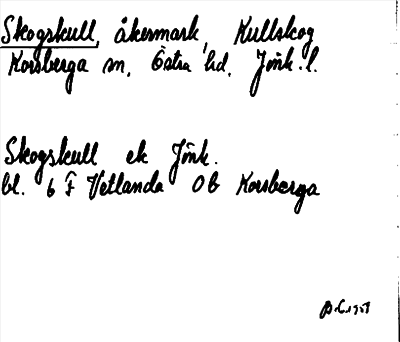 Skogskull, åkermark, Kullskog
Korsberga sn, Östra hd, Jönk. l.
Skogskull ek Jönk.
bl. 6 F Vetlanda OB Korsberga